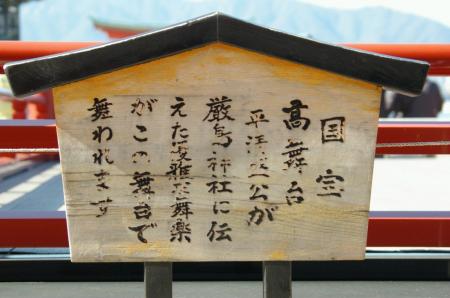 国宝
高舞台
平清盛公が
厳島神社に伝
えた優雅な舞楽
がこの舞台で
舞われます